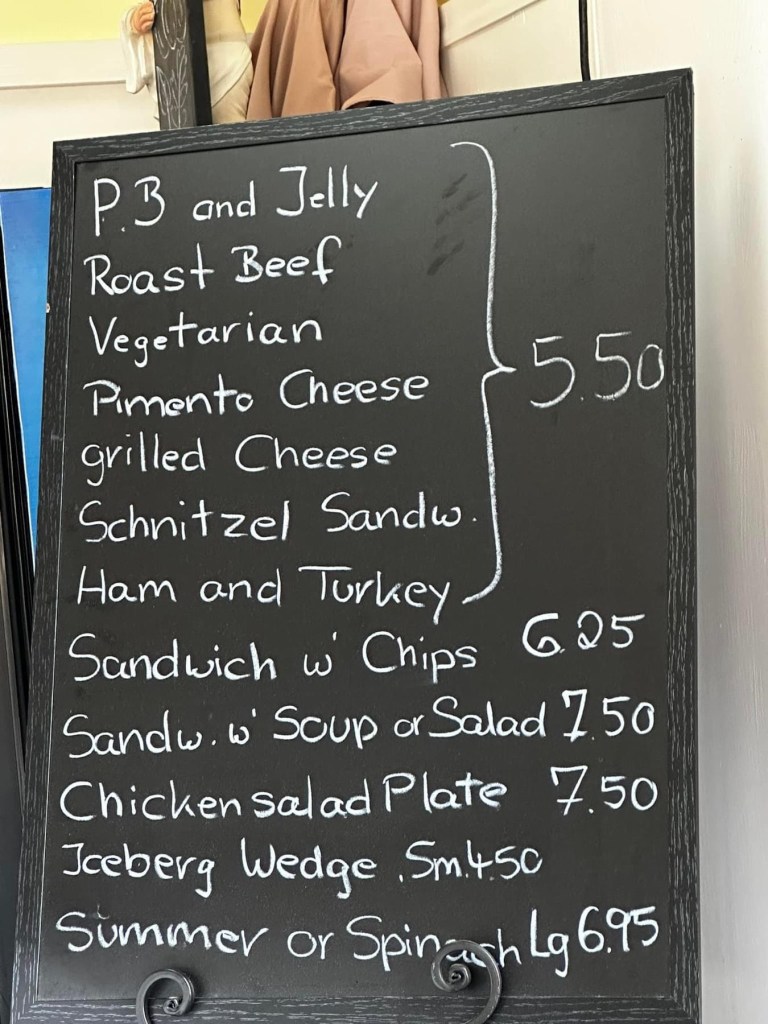 P.B and Jelly
Roast Beef
Vegetarian
Pimento Cheese
5.50
grilled Cheese
Schnitzel Sandw.
Ham and Turkey
Sandwich w' Chips 6.25
Sandw. w' Soup or Salad 7.50
Chicken salad Plate 7.50
Iceberg Wedge Sm.4.50
Summer or Spinach Lg 6.95